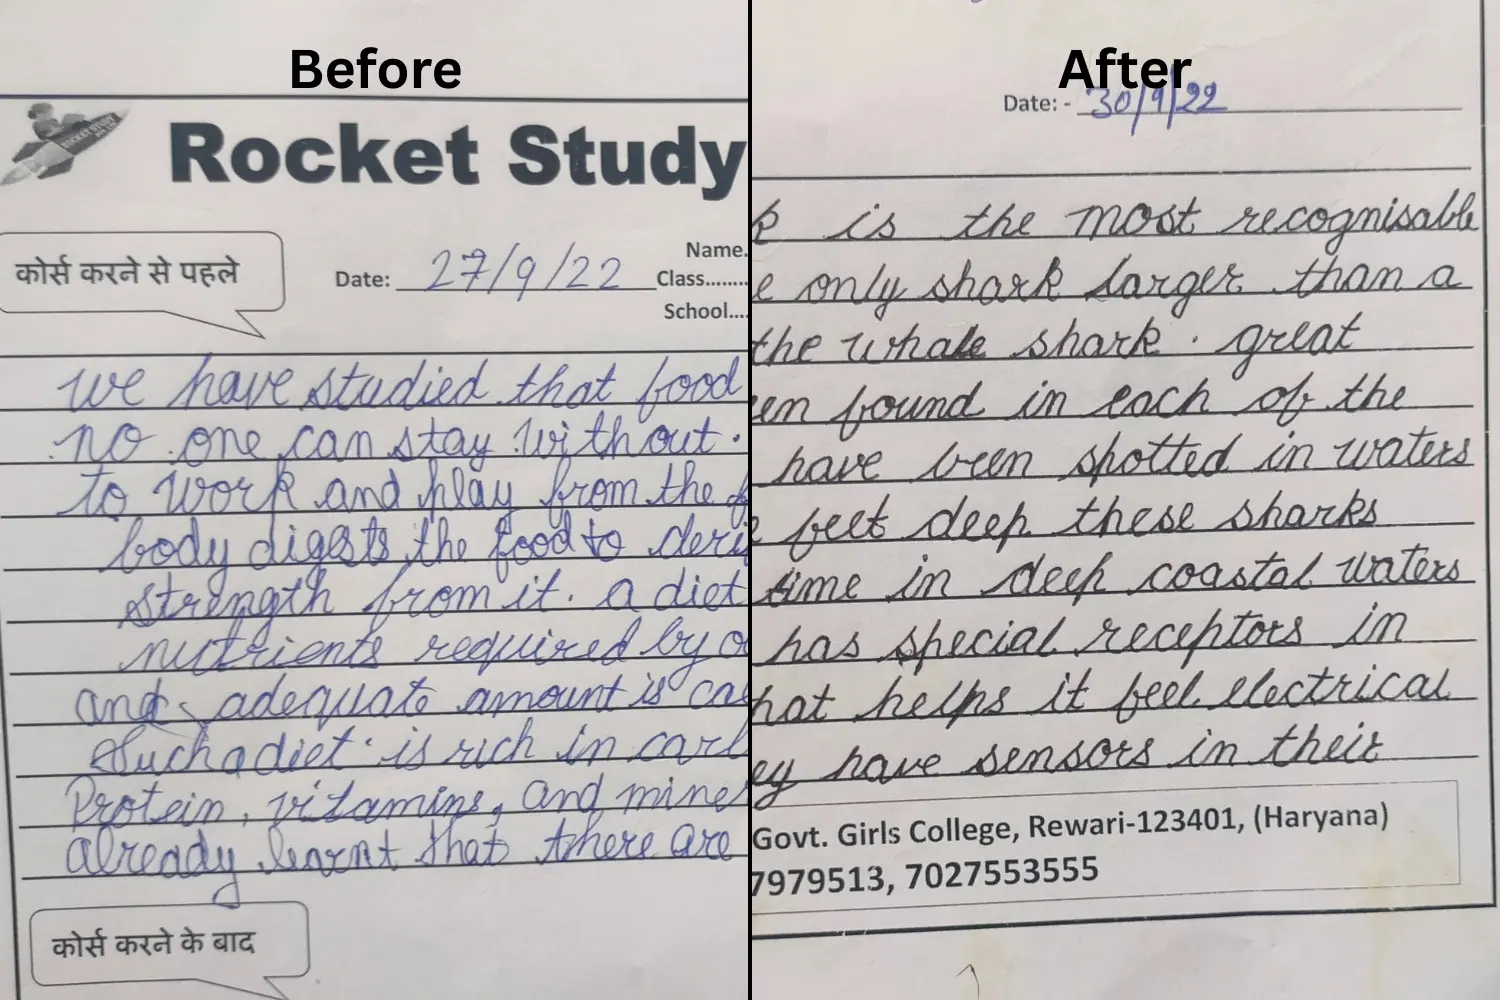 Before
Rocket Study
कोर्स करने से पहले
Date: 27/9/22
Name.
Class........
School....
we have studied that food
no one can stay without.
to work and play from the
body digests the food to
strength from it. a diet
nutrients required by
and adequate amount is
Such a diet is rich in
Protein, vitamins, and
already learnt that there are
कोर्स करने के बाद
After
Date: - 30/9/22
is the most recognisable
only shark larger than a
the whale shark. great
found in each of the
have been spotted in waters
feet deep these sharks
time in deep coastal waters
has special receptors in
hat helps it feel electrical
ey have sensors in their
Govt. Girls College, Rewari-123401, (Haryana)
7979513, 7027553555